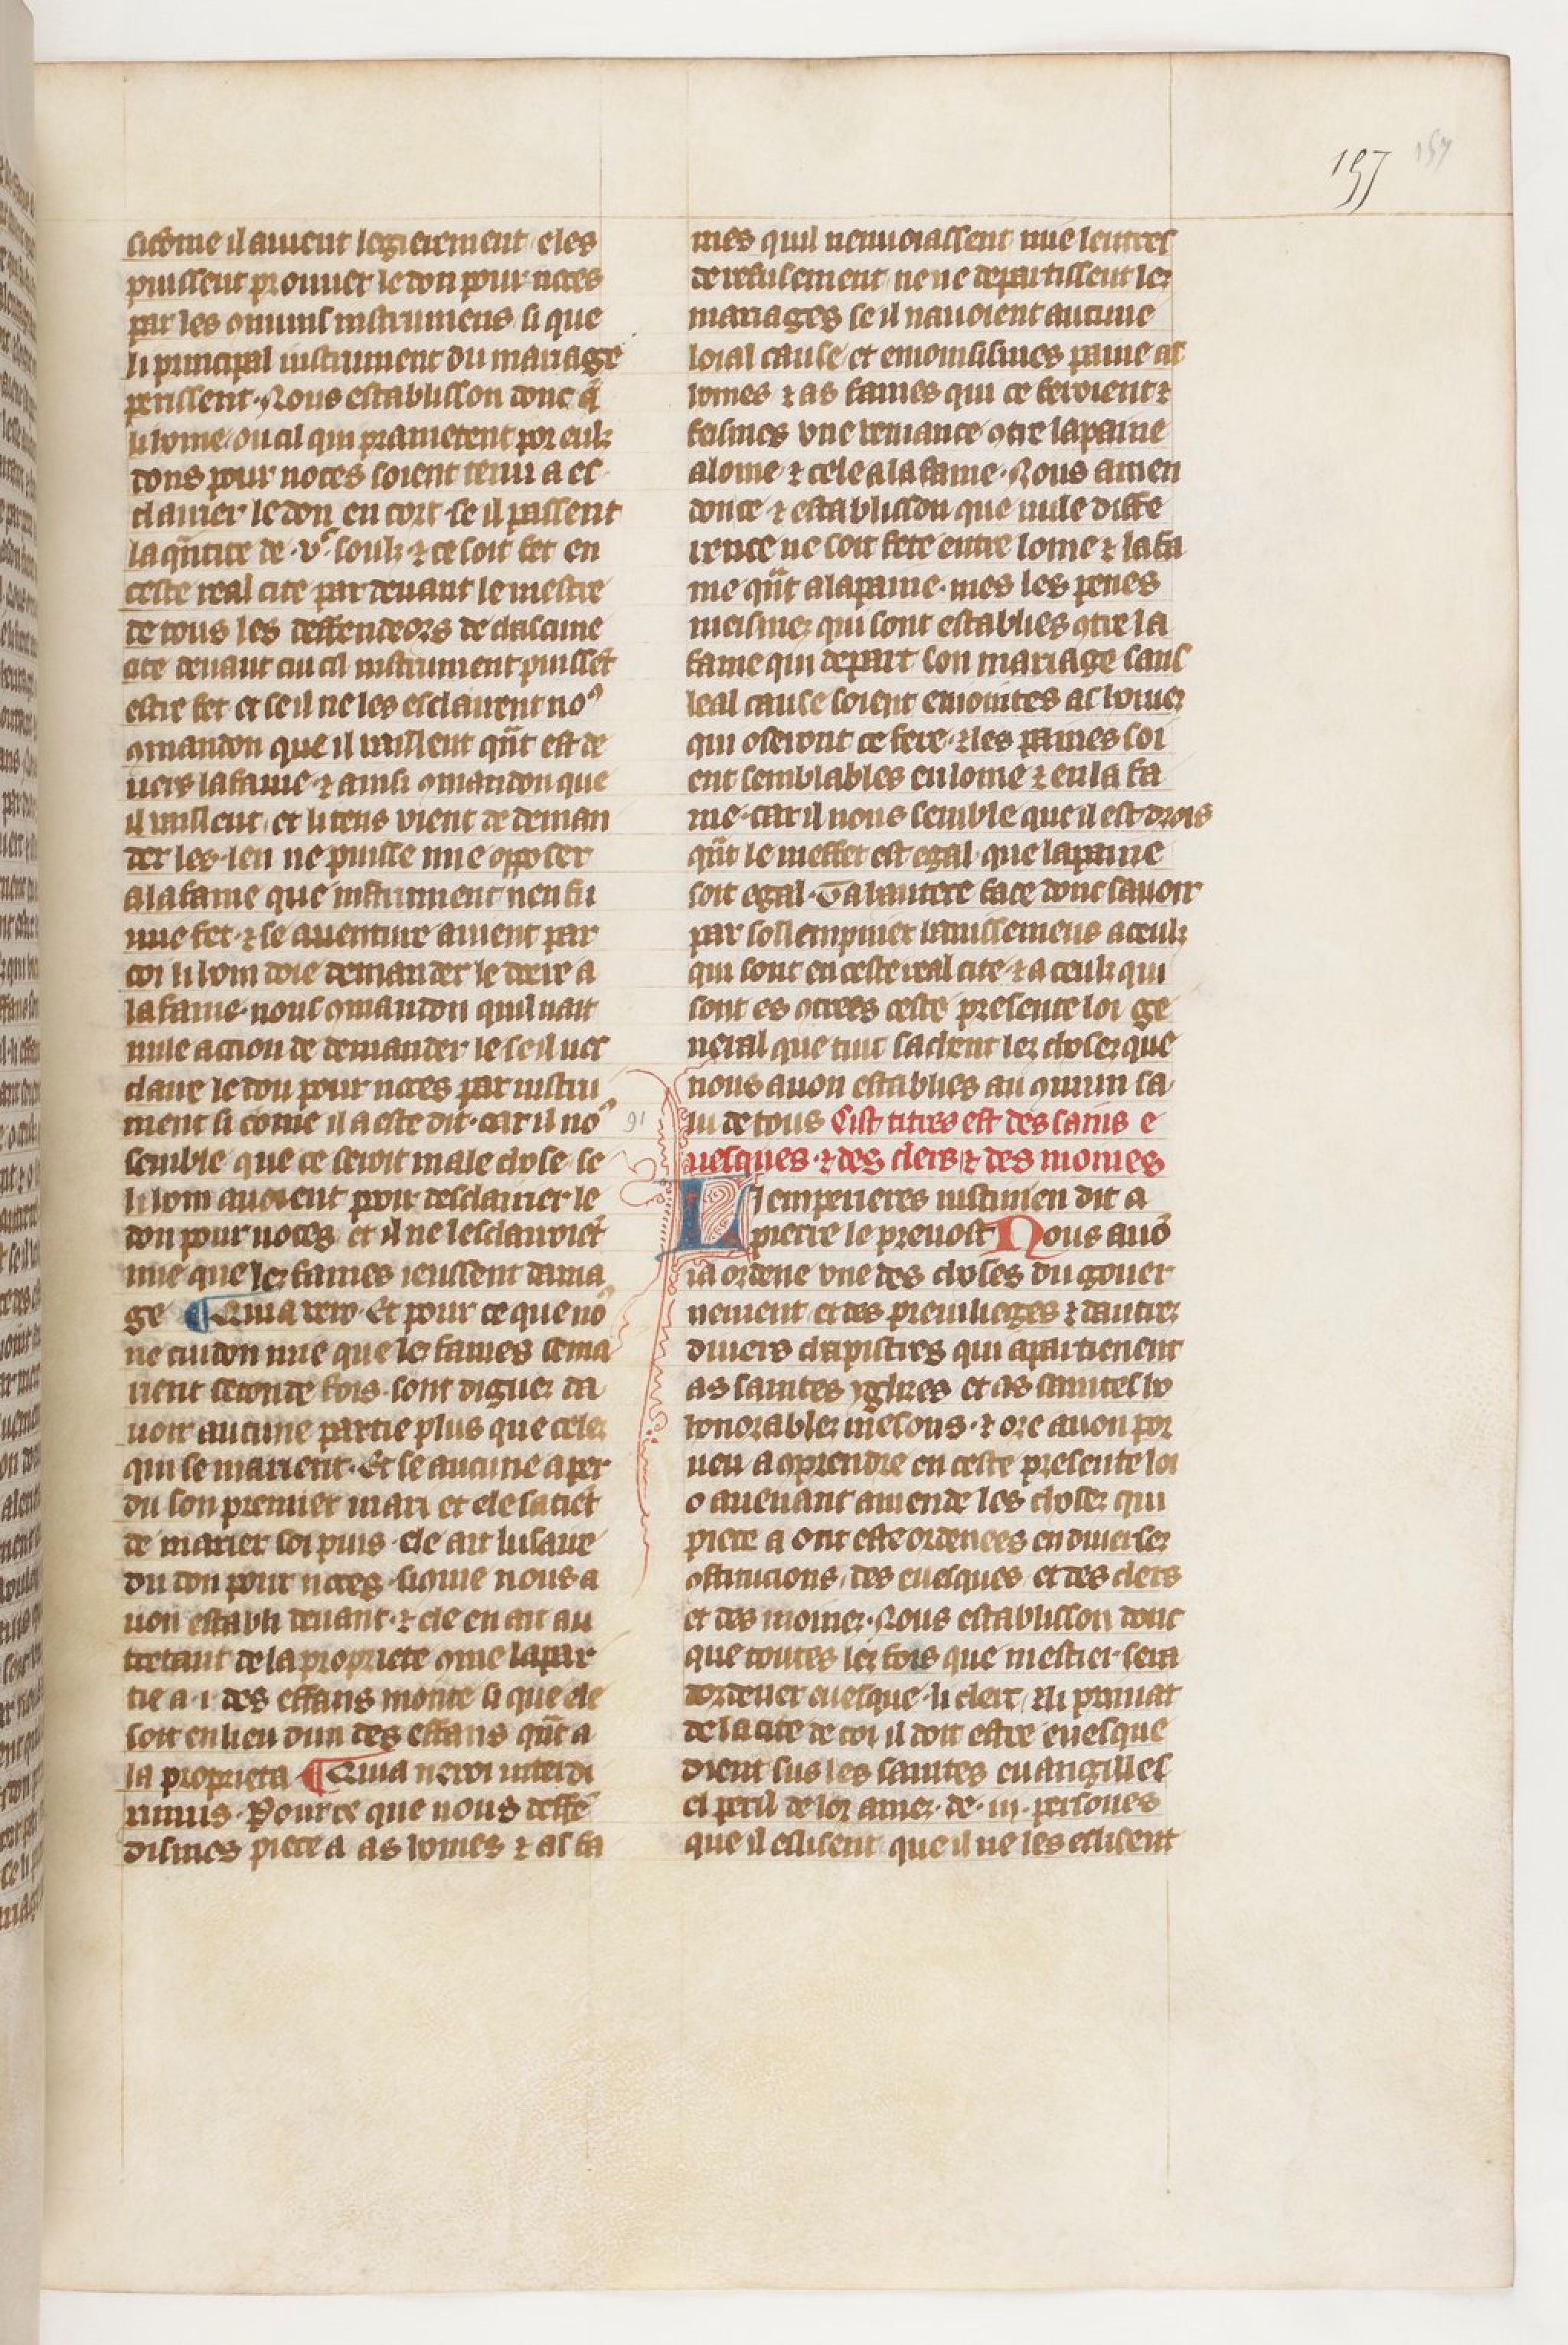 157 157
sicōme il auient legierement eles
puissent prouuer le don pour noces
par les ꝯmuns instrumens si que
li principal instrument du mariage
perissent. Nous establisson donc q̄
li home ou cil qui prametent por eulz
dons pour noces soient tenu a es
clairier le don en cort se il passent
la q̄ntite de .vͨ. soulz ⁊ ce soit fet en
ceste real cite par deuant le mestre
de tous les deffendeors de chascune
cite deuant cui cil instrument puissēt
estre fet et se il ne les esclairent noꝰ
ꝯmandon que il vaillent q̄nt est de
uers la fame ⁊ ainsi ꝯmandon que
il vaillent et li tens vient de deman
der les len ne puisse mie opposer
a la fame que instrument nen fu
mie fet ⁊ se auenture auient par
coi li hom doie demander le dere a
la fame nous ꝯmandon quil nait
nule action de demander le se il nes
claire le don pour noces par instru
ment si come il a este dit. car il noꝰ
semble que ce seroit male chose se
li hom auoient pour desclairier le
don pour noces et il ne lesclairoiēt
mie que lez fames i eussent dama
ge ¶ Quia vero. Et pour ce que noꝰ
ne cuidon mie que les fames se ma
rient seconde fois sont dignez da
uoir aucune partie plus que celez
qui se marient. Et se aucune a per
du son premier mari et ele satiēt
de marier soi puis ele ait lusaire
du don pour noces sicome nous a
uon establi deuant ⁊ ele en ait au
tretant de la propriete ꝯme la par
tie a .i. des effans monte si que ele
soit en lieu dun des effans q̄nt a
la proprieta ¶ Quia nero interdi
ximus. Pour ce que nous deffē
dismes piece a as homes ⁊ as fa
mes quil nenuoiassent mie leitres
de refusement ne ne departissent lez
mariages se il nauoient aucune
loial cause et enioinsismes paine as
homes ⁊ as fames qui ce feroient ⁊
feismes vne veniance ꝯtre la paine
a lome ⁊ cele a la fame. Nous amen
don ce ⁊ establisson que nule diffe
rence ne soit fete entre lome ⁊ la fa
me q̄nt a la paine. mes les penes
meismez qui sont establies ꝯtre la
fame qui depart son mariage sans
leal cause soient eniointes as homez
qui oseront ce fere. ⁊ les paines soi
ent semblables en lome ⁊ en la fa
me. car il nous semble que il est drois
q̄nt le meffet est egal que la paine
soit egal. Ta hautece face donc sauoir
par sollempniez banissemens a ceulz
qui sont en ceste real cite ⁊ a ceulz qui
sont es ꝯtrees ceste presente loi ge
neral que tuit sachent lez chosez que
nous auon establies au ꝯmun sa
lu de tous Cist titres est des sains e
91
uesques ⁊ des clers ⁊ des moines
Li empereres iustinien dit a
pierre le preuost Nous auō
ia ordene vne des choses du gouer
nement et des preuilieges ⁊ dautrez
diuers chapistres qui apartienent
as saintes yglises et as saintes ho
honorablez mesons. ⁊ ore auon por
ueu a ꝯprendre en ceste presente loi
o auenant amende les chosez qui
piece a ont este ordenees en diuersez
ꝯstitucions des euesques et des clers
et des moinez. Nous establisson donc
que toutes lez fois que mestier sera
dordener euesque li clerc ⁊ li primat
de la cite de coi il doit estre euesque
dient sus les saintes euangilles
el peril de lor amez. de .iii. persones
que il eslisent que il ne les eslisent